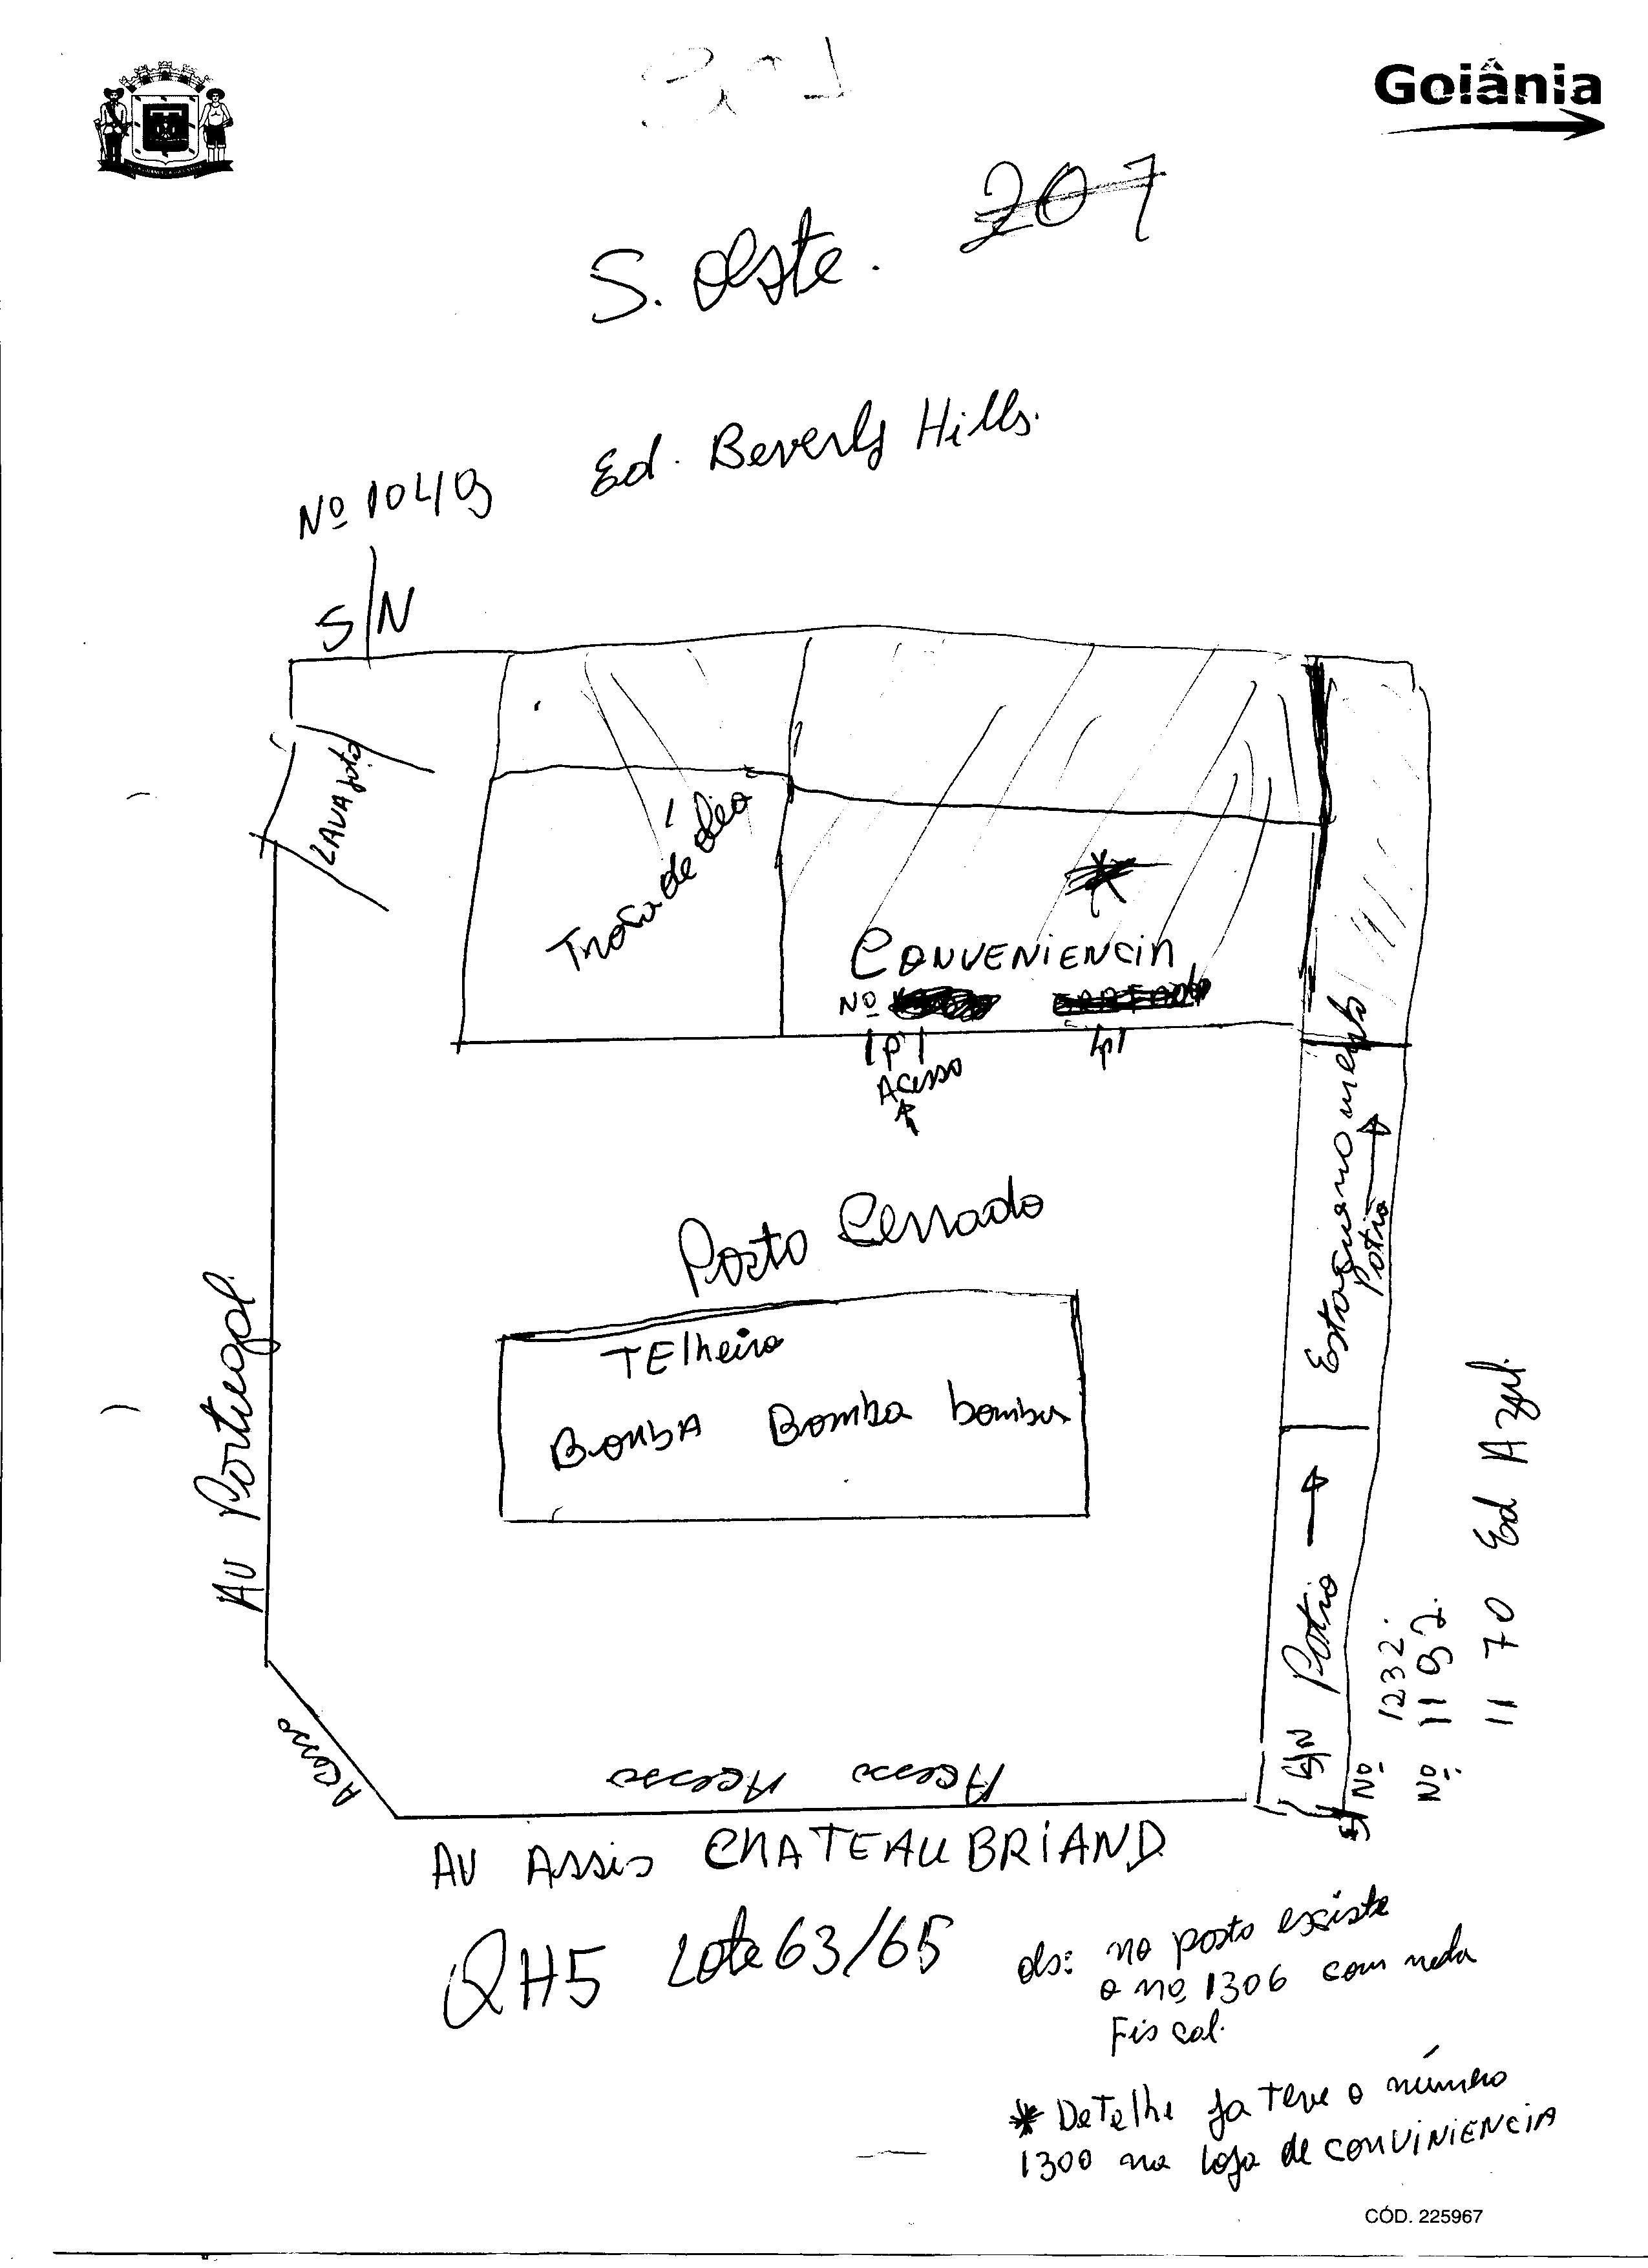 Goiânia
207
S. Oeste.
Ed. Beverly Hills.
Nº 1049
S/N
LAVA Jato
Troca de óleo
*
CONVENIENCIA
Nº
P P
Acesso
Estacionamento
Patio
Posto Cerrado
TElheiro
BombA Bomba bomba
AV Portugal
Patio
S/N
Nº 1232.
Nº 1192.
1170 Ed Azul.
Acesso
Acesso Acesso
AV Assis CHATEAUBRIAND
QH5 Lote 63/65
obs: no posto existe
o no 1306 com nota
Fiscal.
* Detelhe ja teve o número
1300 na loja de CONVINIENCIA
CÓD. 225967